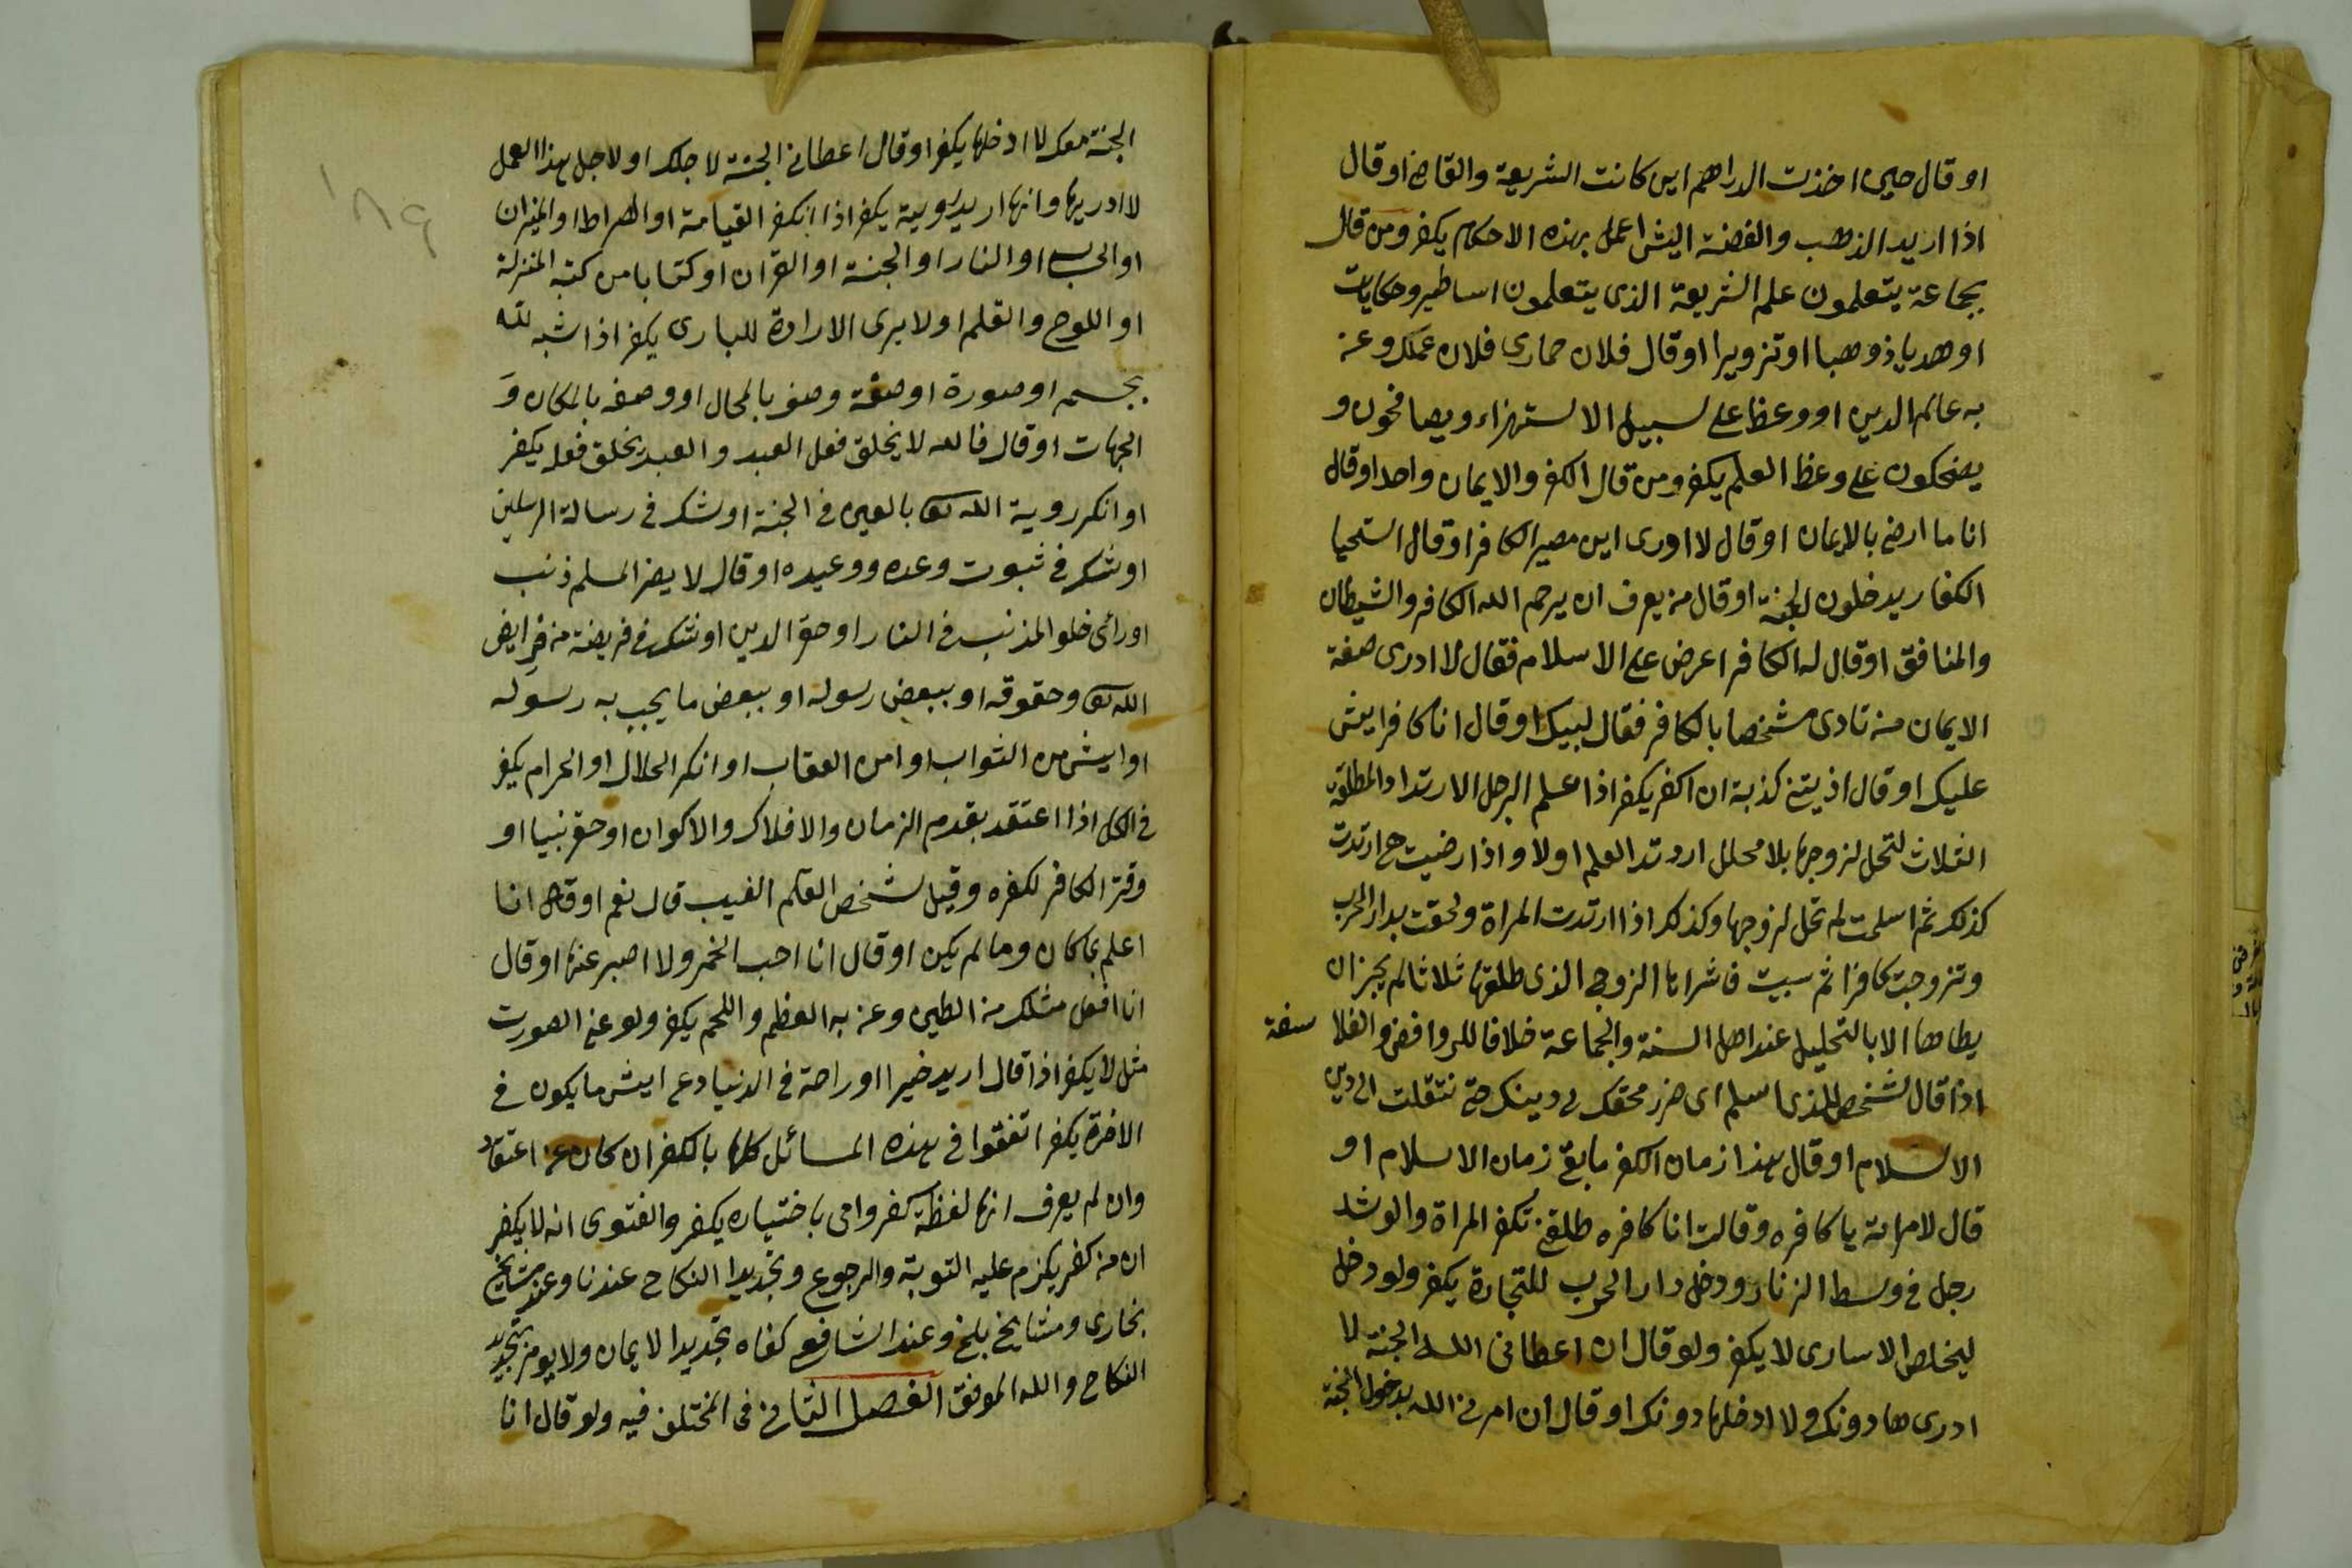 او قال حين اخذت الدراهم اين كانت الشريعة والقاضى او قال
اذا اريد الذهب والفضة اليش اعمل بهذه الاحكام يكفر ومن قال
بجماعة يتعلمون علم الشريعة الذى يتعلمون اساطير وحكايات
او هديا ذوهبا او تزويرا او قال فلان حمارى فلان عمك وعنى
به عالم الدين او وعظ على سبيل الاستهزاء ويصافحون و
يضحكون على وعظ العلم يكفر ومن قال الكفر والايمان واحد او قال
انا ما ارضى بالايمان او قال لا ادرى اين مصير الكافر او قال استحيا
الكفار يدخلون الجنة او قال من يعرف ان يرحم الله الكافر والشيطان
والمنافق او قال له الكافر اعرض على الاسلام فقال لا ادرى صفة
الايمان من نادى شخصا بالكافر فقال لبيك او قال انا كافر ايش
عليك او قال اذيتنى كذبة ان اكفر يكفر اذا علم الرجل الارتداد المطلقة
الثلاث لتحل لزوجها بلا محلل ارتد العلم اولا واذا رضيت حـ ارتدت
كذلك ثم اسلمت لم تحل لزوجها وكذلك اذا ارتدت المراة ولحقت بدار الحرب
وتزوجت كافرا ثم سبيت فاشراها الزوج الذى طلقها ثلاثا لم يجز ان
يطاها الا بالتحليل عند اهل السنة والجماعة خلافا للروافض والفلا سفة
اذا قال لشخص الذى اسلم اى ضرر محقك فى دينك حتى نتقلت الى دين
الاسلام او قال هذا زمان الكفر ما بقى زمان الاسلام او
قال لامراته يا كافره وقالت انا كافره طلقنى تكفر المراة والوشد
رجل فى وسط الزنار ودخل دار الحرب للتجارة يكفر ولو دخل
ليخلص الاسارى لا يكفر ولو قال ان اعطانى الله الجنة لا
ادرى ها دونك ولا ادخلها دونك او قال ان امرنى الله بدخول الجنة
الجنة معك لا ادخلها يكفر او قال اعطانى الجنة لاجلك او لاجل هذا العمل
لا ادريها وانها اريد رويية يكفر اذا انكر القيامة او الصراط او الميزان
او الحساب او النار او الجنة او القران او كتابا من كتبه المنزلة
او اللوح والقلم او لا يرى الارادة للبارى يكفر اذا شبه لله
بجسم او صورة او صفة وصف بالمحال او وصفه بالمكان وَ
الجهات او قال فالله لا يخلق فعل العبد والعبد يخلق فعله يكفر
او انكر روية الله تعا بالعين فى الجنة او شك فى رسالة المرسلين
او شك فى ثبوت وعده ووعيده او قال لا يضر المسلم ذنب
او رائى خلو المذنب فى النار او حقر الدين او شك فى فريضة من فرايض
الله تعا وحقوقه او ببعض رسوله او ببعض ما يجب به رسوله
او ايش من الثواب او امن العقاب او انكر الحلال او الحرام يكفر
فى الكل اذا اعتقد بقدم الزمان والافلاك والاكوان او حقر نبيا او
وقتر الكافر لكفره وقيل لشخص القلم الغيب قال نعم او قال انا
اعلم بما كان وما لم يكن او قال انا احب الخمر ولا اصبر عنها او قال
انا افعل مثلك من الطين وعنى به العظم واللحم يكفر ولو عنى الصورت
مثل لا يكفر اذا قال اريد خيرا او راحة فى الدنيا دع ايش ما يكون فى
الاخرة يكفر اتفقوا فى هذه المسائل كلها بالكفر ان كان عن اعتقاد
وان لم يعرف انها لفظة كفر واتى باختياره يكفر والفتوى انه لا يكفر
ان من كفر يلزم عليه التوبة والرجوع وتجديدا النكاح عندنا وعند مشايخ
بخارى ومشايخ بلخ وعند الشافعى كفاه تجديدا الايمان ولا يومر بتجديد
النكاح والله الموفق الفصل الثانى فى المختلف فيه ولو قال انا
١٨٩